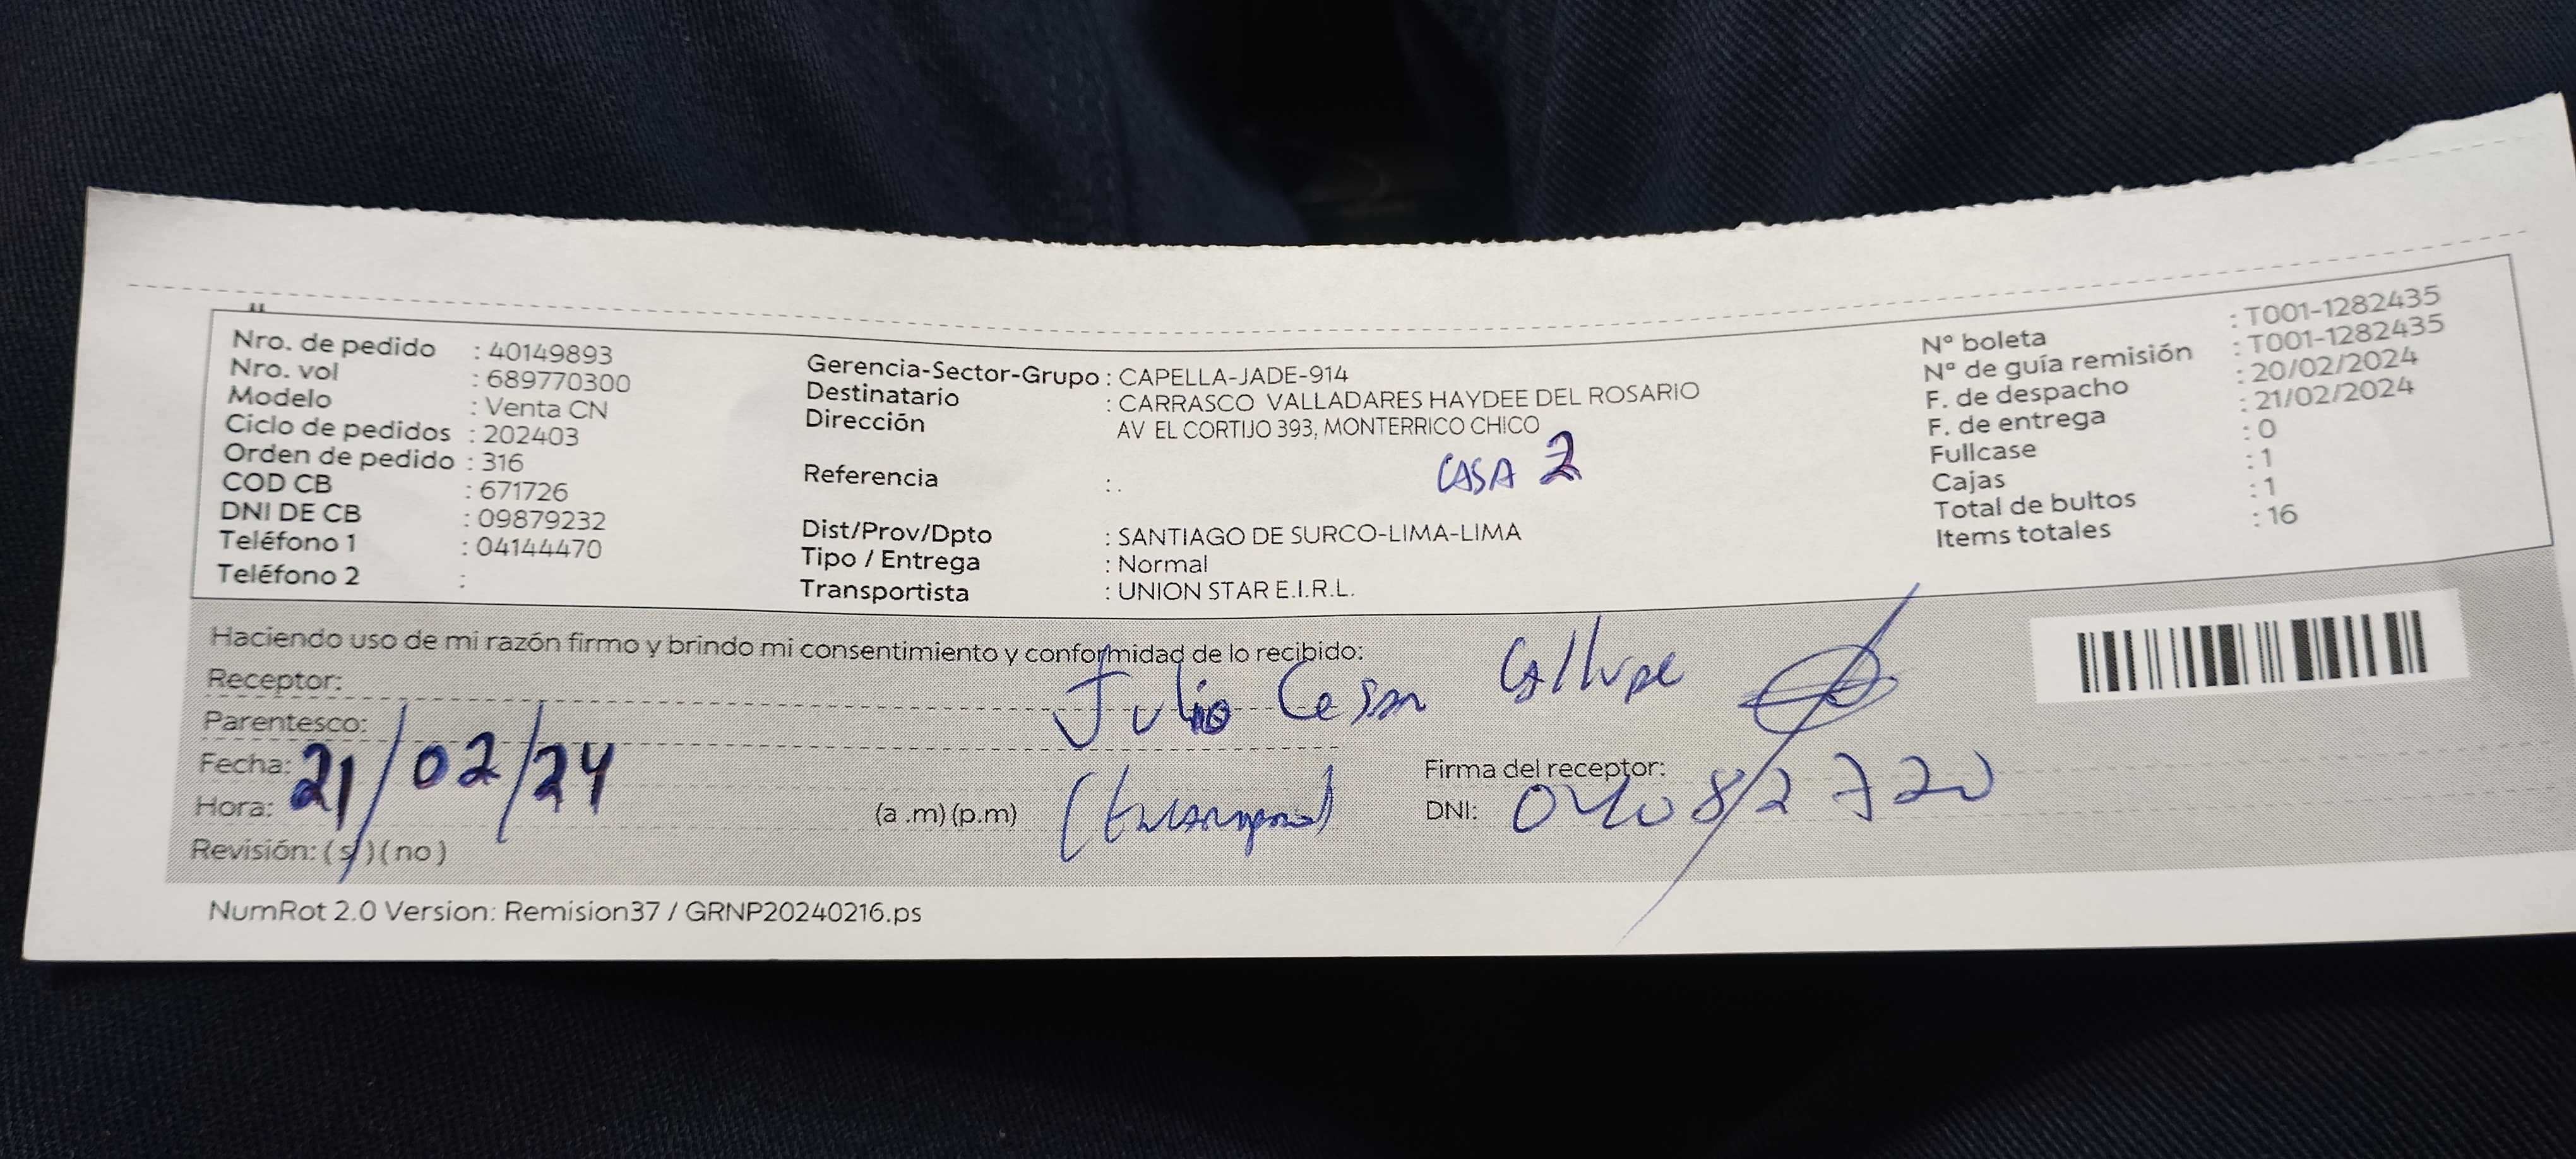 Nro. de pedido : 40149893
Nro. vol : 689770300
Modelo : Venta CN
Ciclo de pedidos : 202403
Orden de pedido : 316
COD CB : 671726
DNI DE CB : 09879232
Teléfono 1 : 04144470
Teléfono 2 :
Gerencia-Sector-Grupo : CAPELLA-JADE-914
Destinatario : CARRASCO VALLADARES HAYDEE DEL ROSARIO
Dirección AV EL CORTIJO 393, MONTERRICO CHICO
CASA 2
Referencia : .
Dist/Prov/Dpto : SANTIAGO DE SURCO-LIMA-LIMA
Tipo / Entrega : Normal
Transportista : UNION STAR E.I.R.L.
N° boleta : T001-1282435
N° de guía remisión : T001-1282435
F. de despacho : 20/02/2024
F. de entrega : 21/02/2024
Fullcase : 0
Cajas : 1
Total de bultos : 1
Items totales : 16
Haciendo uso de mi razón firmo y brindo mi consentimiento y conformidad de lo recibido:
Receptor: Julio Cesar Callupe
Parentesco:
Fecha: 21/02/24
Firma del receptor:
Hora: (a .m) (p.m)
DNI: 04082720
Revisión: ( si ) ( no )
NumRot 2.0 Version: Remision37 / GRNP20240216.ps